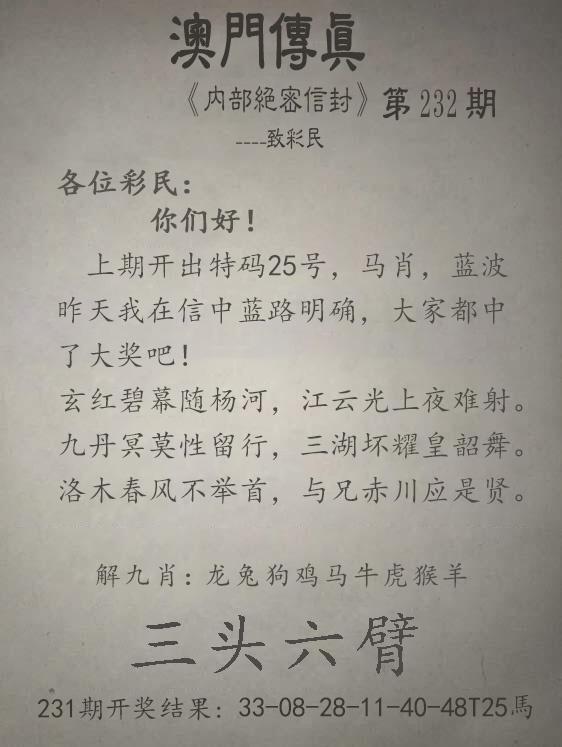 澳門傳眞
《内部絕密信封》第232期
----致彩民
各位彩民：
你们好！
上期开出特码25号，马肖，蓝波
昨天我在信中蓝路明确，大家都中
了大奖吧！
玄红碧幕随杨河，江云光上夜难射。
九丹冥莫性留行，三湖坏耀皇韶舞。
洛木春风不举首，与兄赤川应是贤。
解九肖：龙兔狗鸡马牛虎猴羊
三头六臂
231期开奖结果：33-08-28-11-40-48T25馬